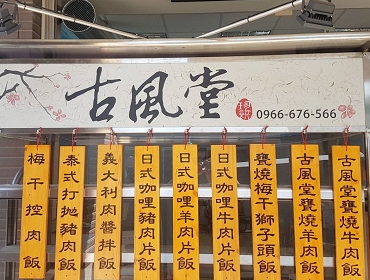 古風堂
0966-676-566
古風堂甕燒牛肉飯
古風堂甕燒羊肉飯
甕燒梅干獅子頭飯
日式咖哩牛肉片飯
日式咖哩羊肉片飯
日式咖哩豬肉片飯
義大利肉醬拌飯
泰式打拋豬肉飯
梅干控肉飯